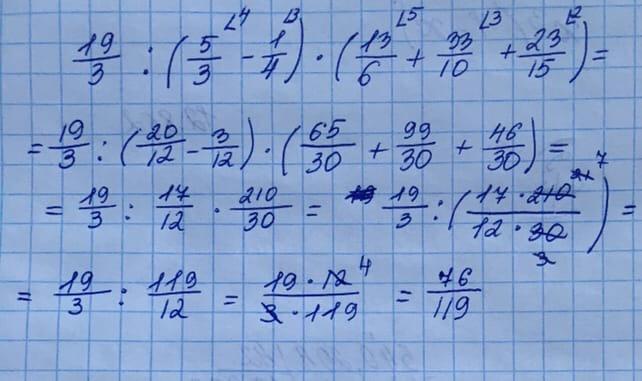 19/3 : (5/3 ∟4 - 1/4 ∟3) · (13/6 ∟5 + 33/10 ∟3 + 23/15 ∟2) =
= 19/3 : (20/12 - 3/12) · (65/30 + 99/30 + 46/30) =
= 19/3 : 17/12 · 210/30 = 19/3 : (17 · 210 21 7 / 12 · 30 3) =
= 19/3 : 119/12 = 19 · 12 4 / 3 · 119 = 76/119